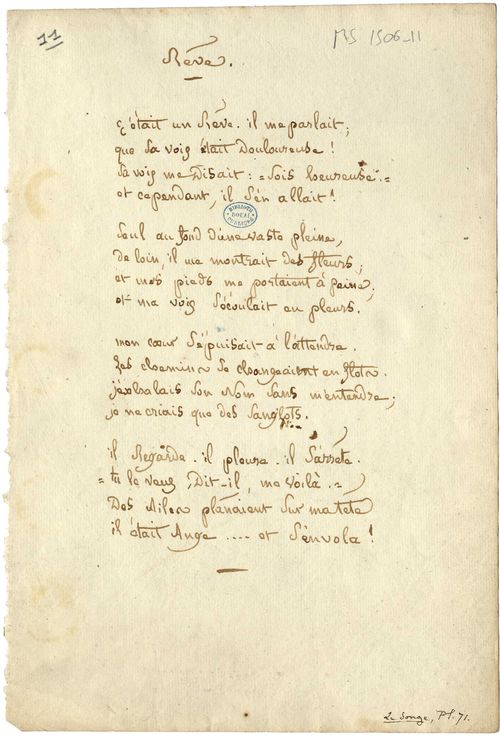 11
MS 1506-11
Rêve.
ç'était un Rêve. il me parlait;
que sa voix était Douloureuse!
Sa voix me Disait: « Sois heureuse. »
et cependant, il s'en allait!
BIBLIOTH
DOUAI
PUBLIQUE
Seul au fond d'une vaste pleine,
de loin, il me montrait des fleurs;
et mes pieds me portaient à peine;
et ma voix s'écoulait en pleurs.
mon cœur s'épuisait à l'attendre.
Les chemins se changeaient en flots.
j'exhalais son Nom sans m'entendre;
je ne criais que des sanglots.
il Regarde. il pleure. il s'arrête.
« tu le veux, Dit-il, me voilà. »
Des Ailes planaient sur ma tête
il était Ange .... et s'envola!
Le Songe, Pl. 71.